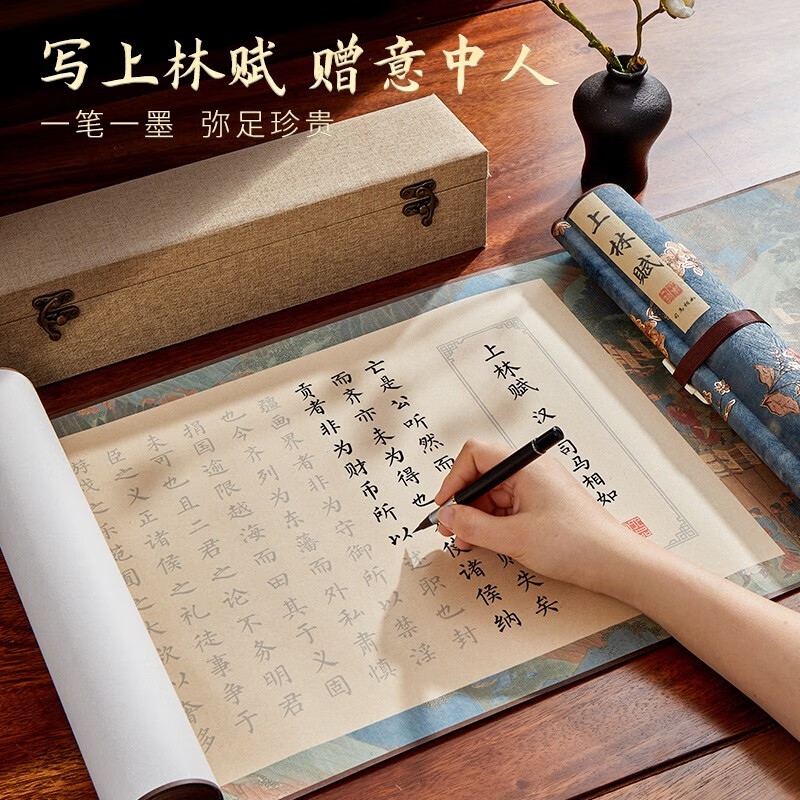 写上林赋 赠意中人
一笔一墨 弥足珍贵
上林赋
上林赋 汉 司马相如
亡是公听然而 失矣
而齐亦未为得也 使诸侯纳
贡者非为财币所以述职也封
疆画界者非为守御所以禁淫
也今齐列为东藩而外私肃慎
捐国逾限越海而田其于义固
未可也且二君之论不务明君
臣之义正诸侯之礼徒事争于
游戏之乐苑囿之大欲以奢侈